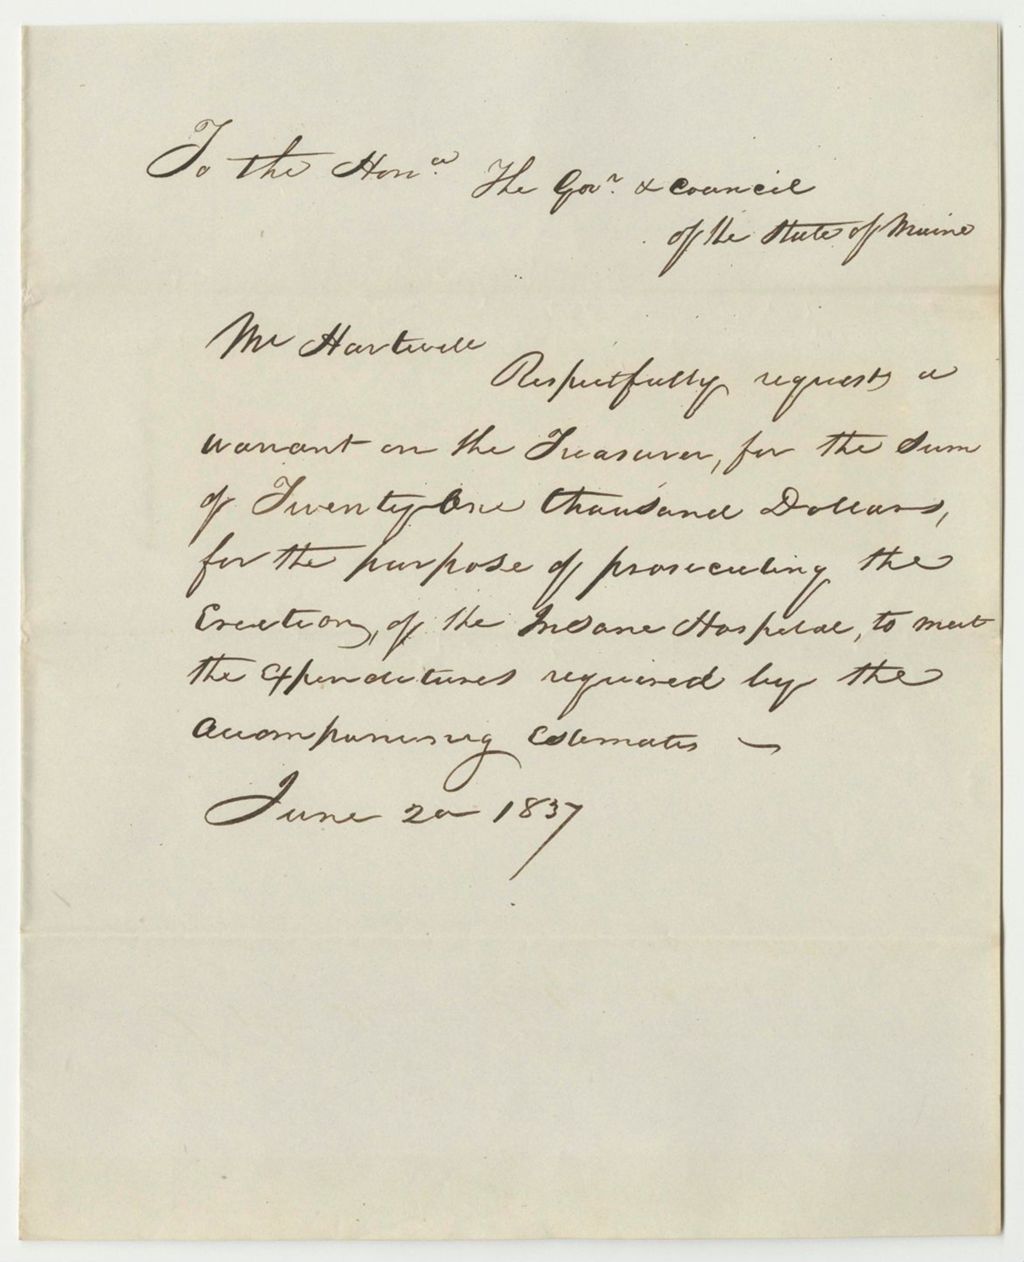 To the Hon.ᵉ The Gov.ʳ & Council
of the State of Maine
Mr Hartwell
Respectfully requests a
warrant on the Treasurer, for the Sum
of Twenty One thousand Dollars,
for the purpose of prosecuting the
Erection, of the Insane Hospital, to meet
the Expenditures required by the
Accompanying Estimates —
June 20 1837